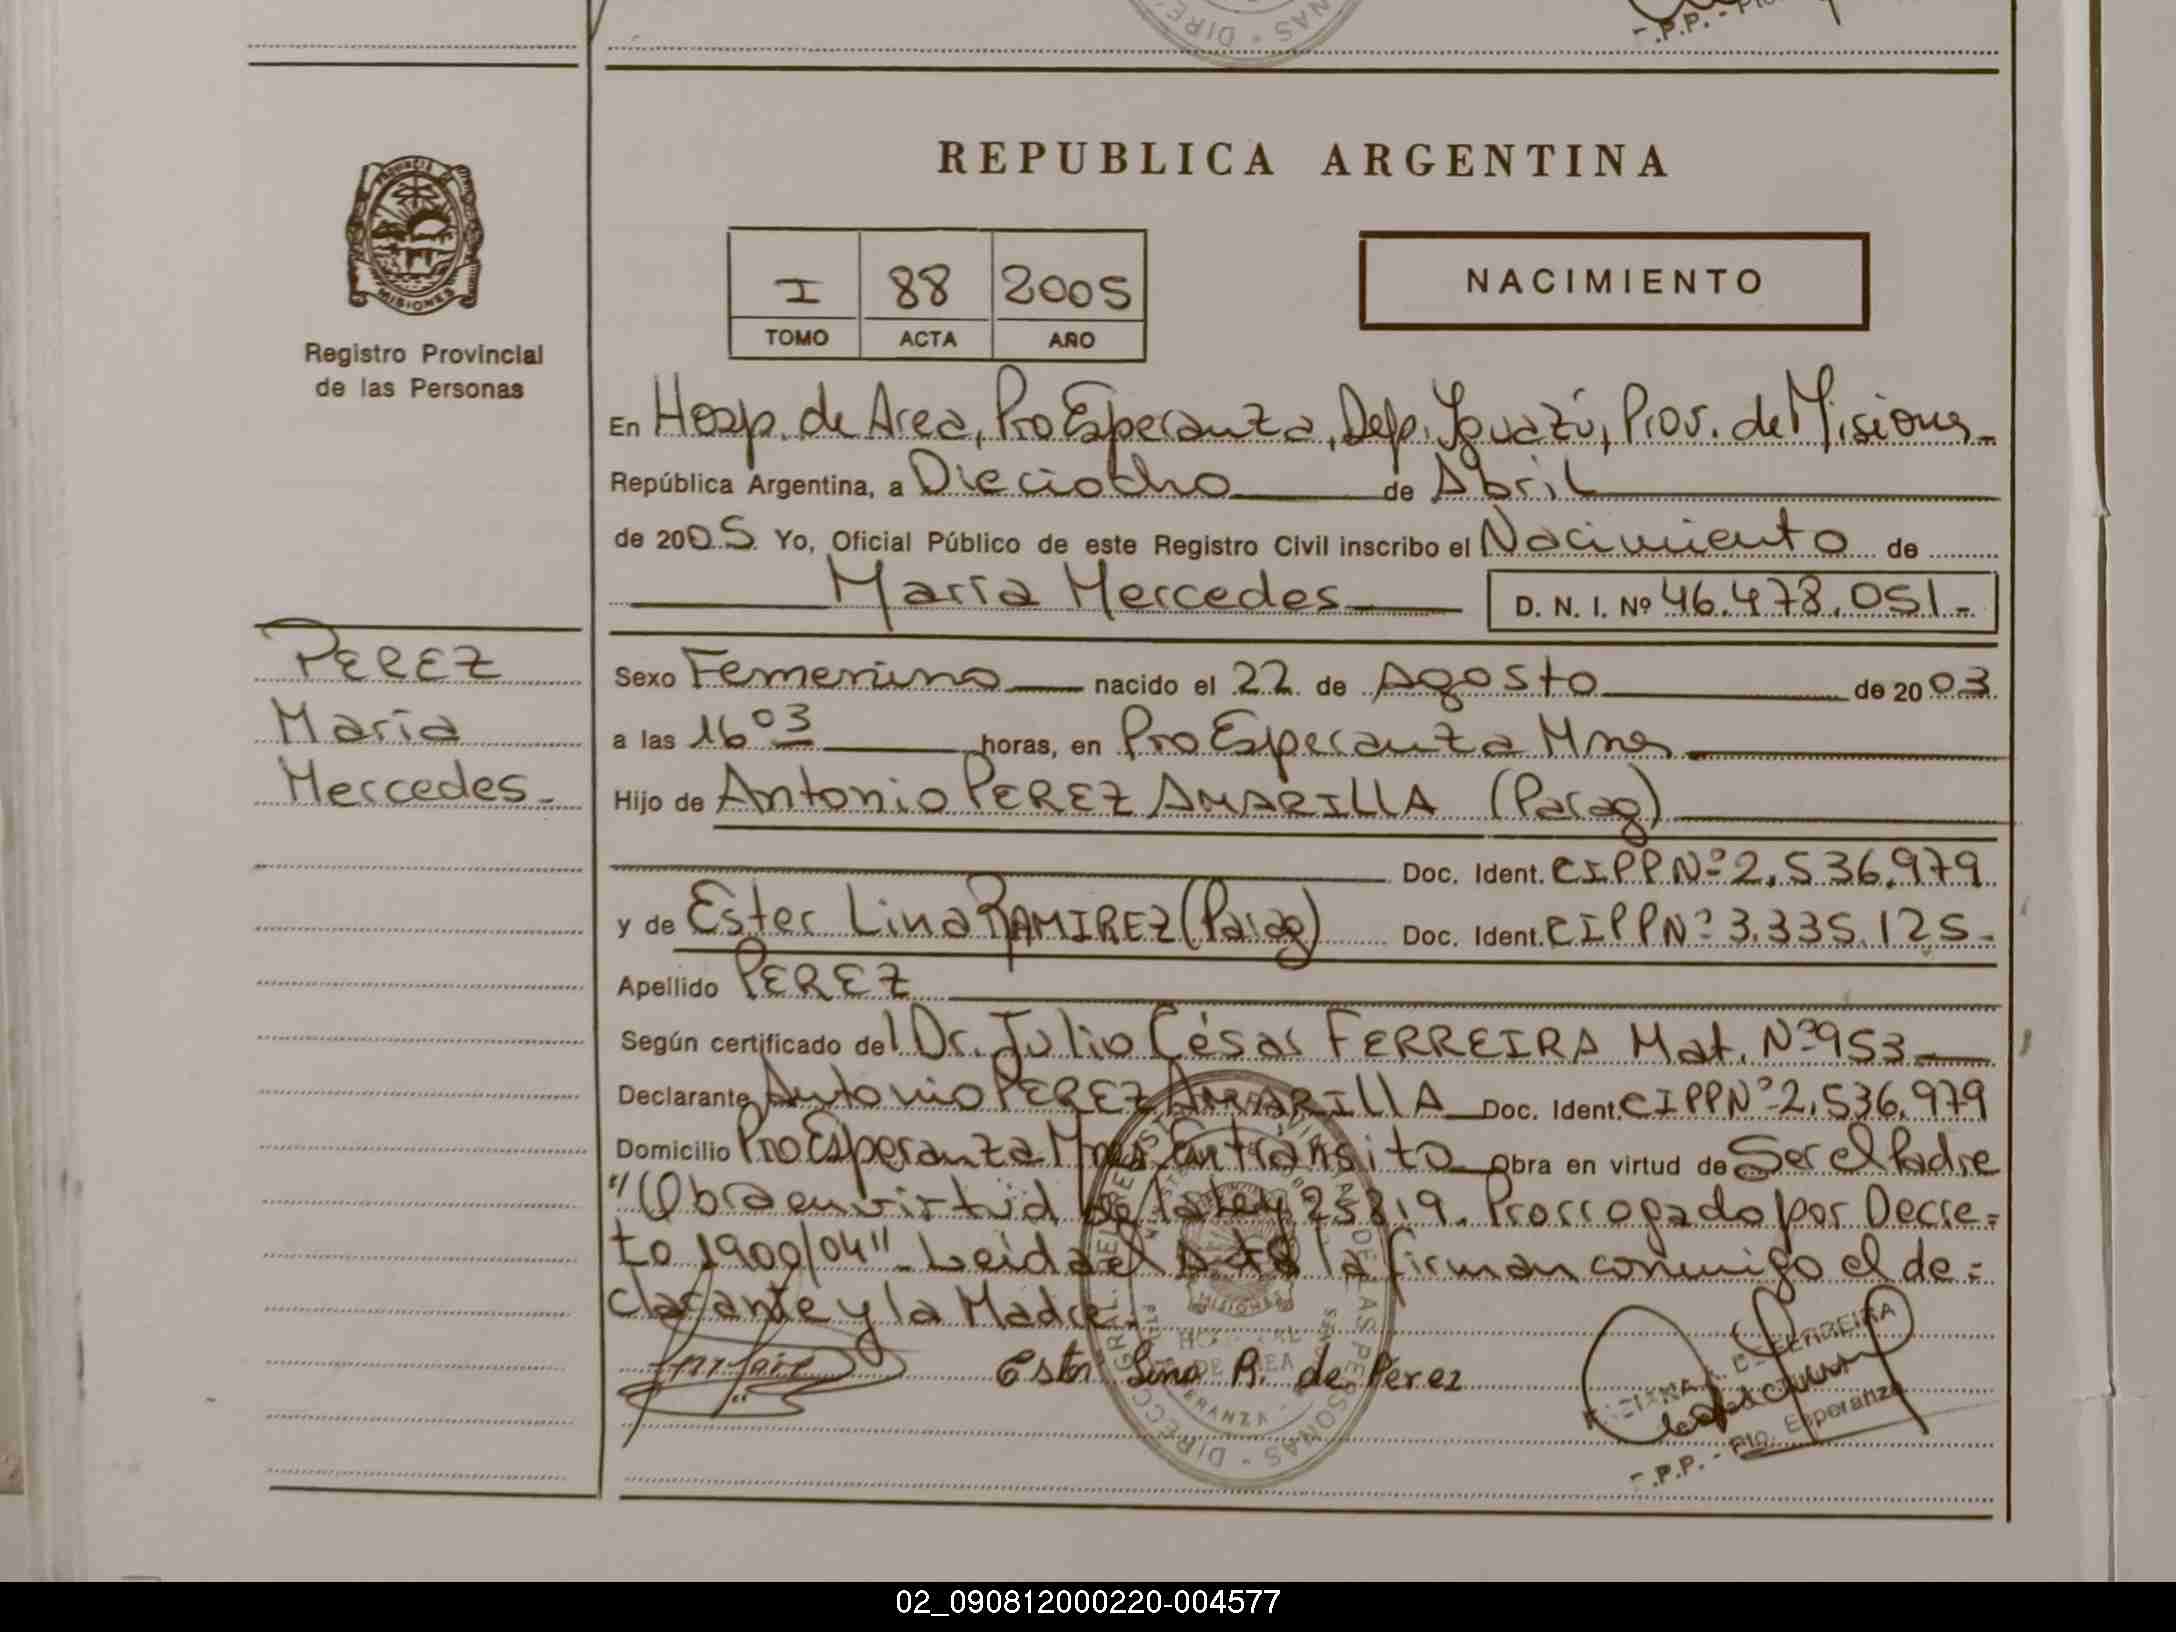 REPUBLICA ARGENTINA
NACIMIENTO
I 88 2005
TOMO ACTA AÑO
MISIONES
Registro Provincial
de las Personas
En Hosp. de Area, Pto Esperanza, Dep. Iguazú, Prov. de Misiones
República Argentina, a Dieciocho de Abril
de 2005 Yo, Oficial Público de este Registro Civil inscribo el Nacimiento de
María Mercedes D. N. I. Nº 46.478.051.-
PEREZ
María
Mercedes.-
Sexo Femenino nacido el 22 de Agosto de 2003
a las 16 03 horas, en Pto Esperanza Mnes
Hijo de Antonio PEREZ AMARILLA (Parag)
Doc. Ident. CIPPNº 2.536.979
y de Ester Lina RAMIREZ (Parag) Doc. Ident. CIPPNº 3.335.125.-
Apellido PEREZ
Según certificado del Dr. Julio César FERREIRA Mat. Nº 953
Declarante Antonio PEREZ AMARILLA Doc. Ident. CIPPNº 2.536.979
Domicilio Pto Esperanza Mnes En tránsito Obra en virtud de Ser el Padre
"Obra en virtud de la Ley 25819. Prorrogado por Decre=
to 1900/04". Leida el Acta la firman conmigo el de=
clarante y la Madre.
Ester Lina R. de Perez
C. FERREIRA
P.P. - Pto. Esperanza
02_090812000220-004577